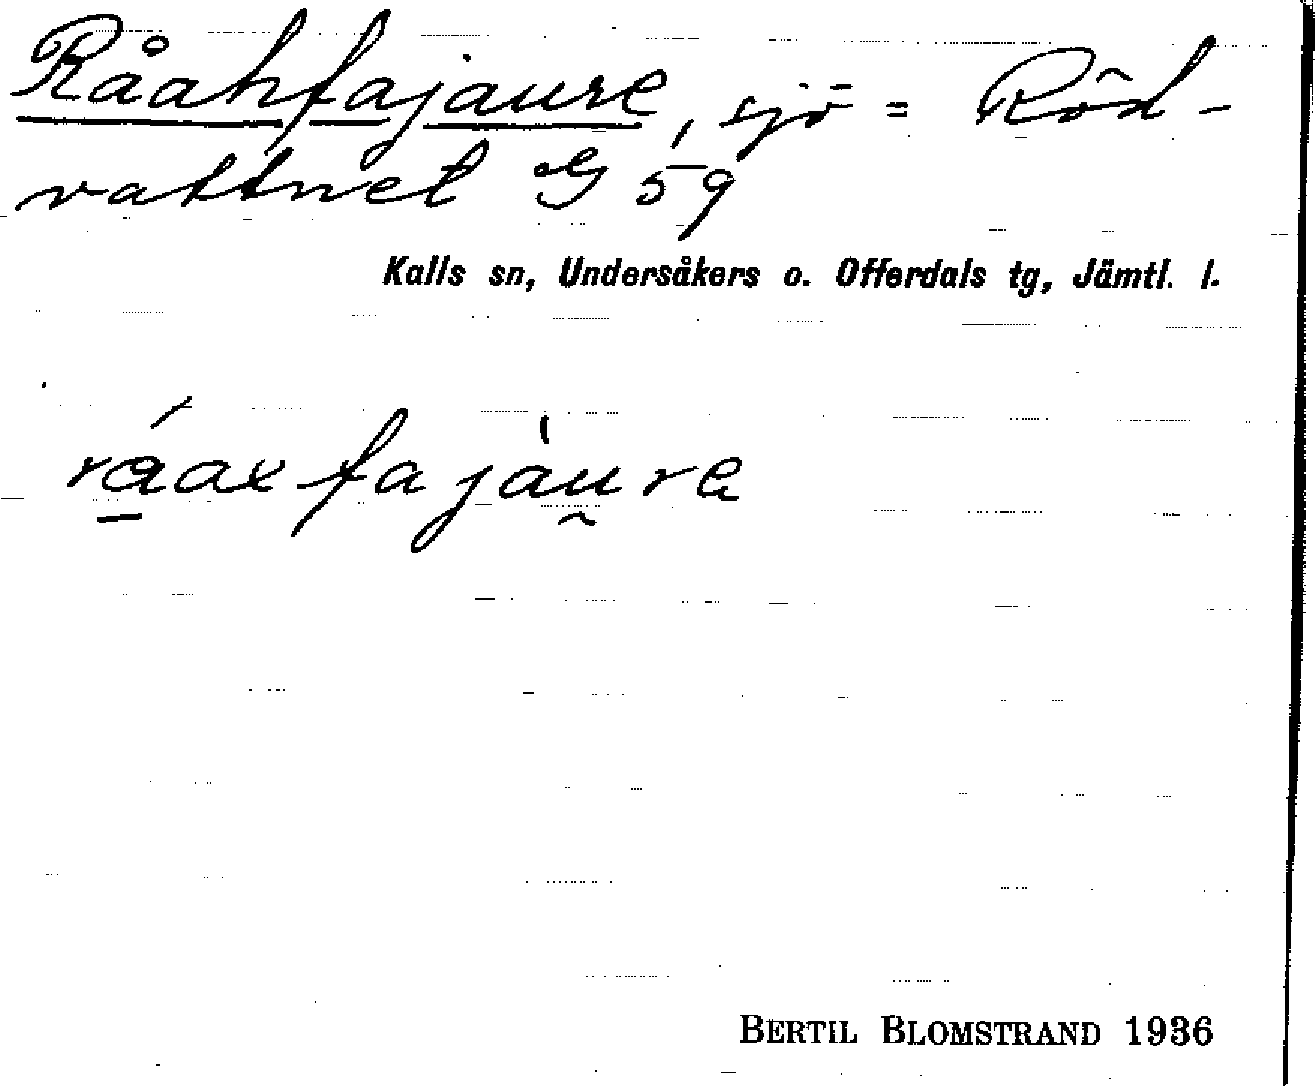 Råahfajaure, sjö = Röd-
vattnet G 59
Kalls sn, Undersåkers o. Offerdals tg, Jämtl. l.
råaxfajaure
BERTIL BLOMSTRAND 1936